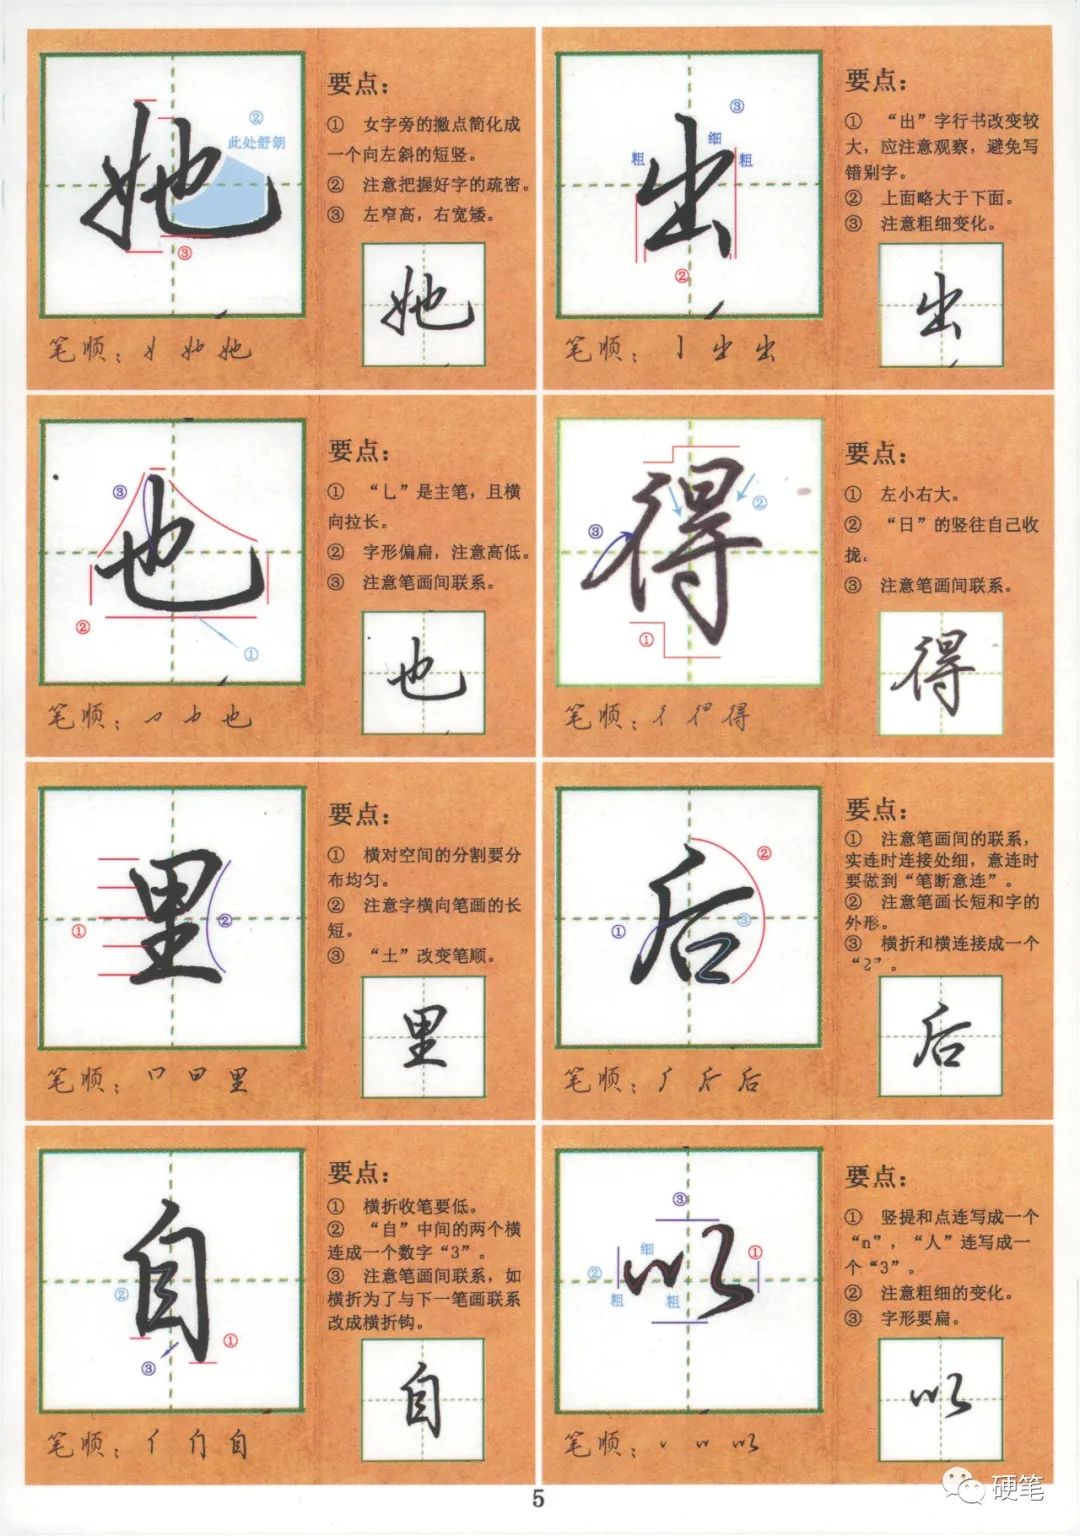 她
②
此处舒朗
③
要点：
① 女字旁的撇点简化成
一个向左斜的短竖。
② 注意把握好字的疏密。
③ 左窄高，右宽矮。
她
笔顺：
她
出
③
细
粗
粗
②
要点：
① “出”字行书改变较
大，应注意观察，避免写
错别字。
② 上面略大于下面。
③ 注意粗细变化。
出
笔顺：
出
也
③
②
①
要点：
① “乚”是主笔，且横
向拉长。
② 字形偏扁，注意高低。
③ 注意笔画间联系。
也
笔顺：
也
得
②
③
①
要点：
① 左小右大。
② “日”的竖往自己收
拢。
③ 注意笔画间联系。
得
笔顺：
得
里
①
②
要点：
① 横对空间的分割要分
布均匀。
② 注意字横向笔画的长
短。
③ “土”改变笔顺。
里
笔顺：
里
后
②
①
③
要点：
① 注意笔画间的联系，
实连时连接处细，意连时
要做到“笔断意连”。
② 注意笔画长短和字的
外形。
③ 横折和横连接成一个
“2”。
后
笔顺：
后
自
②
①
③
要点：
① 横折收笔要低。
② “自”中间的两个横
连成一个数字“3”。
③ 注意笔画间联系，如
横折为了与下一笔画联系
改成横折钩。
自
笔顺：
自
以
③
细
①
②
粗
粗
要点：
① 竖提和点连写成一个
“n”，“人”连写成一
个“3”。
② 注意粗细的变化。
③ 字形要扁。
以
笔顺：
以
5
硬笔